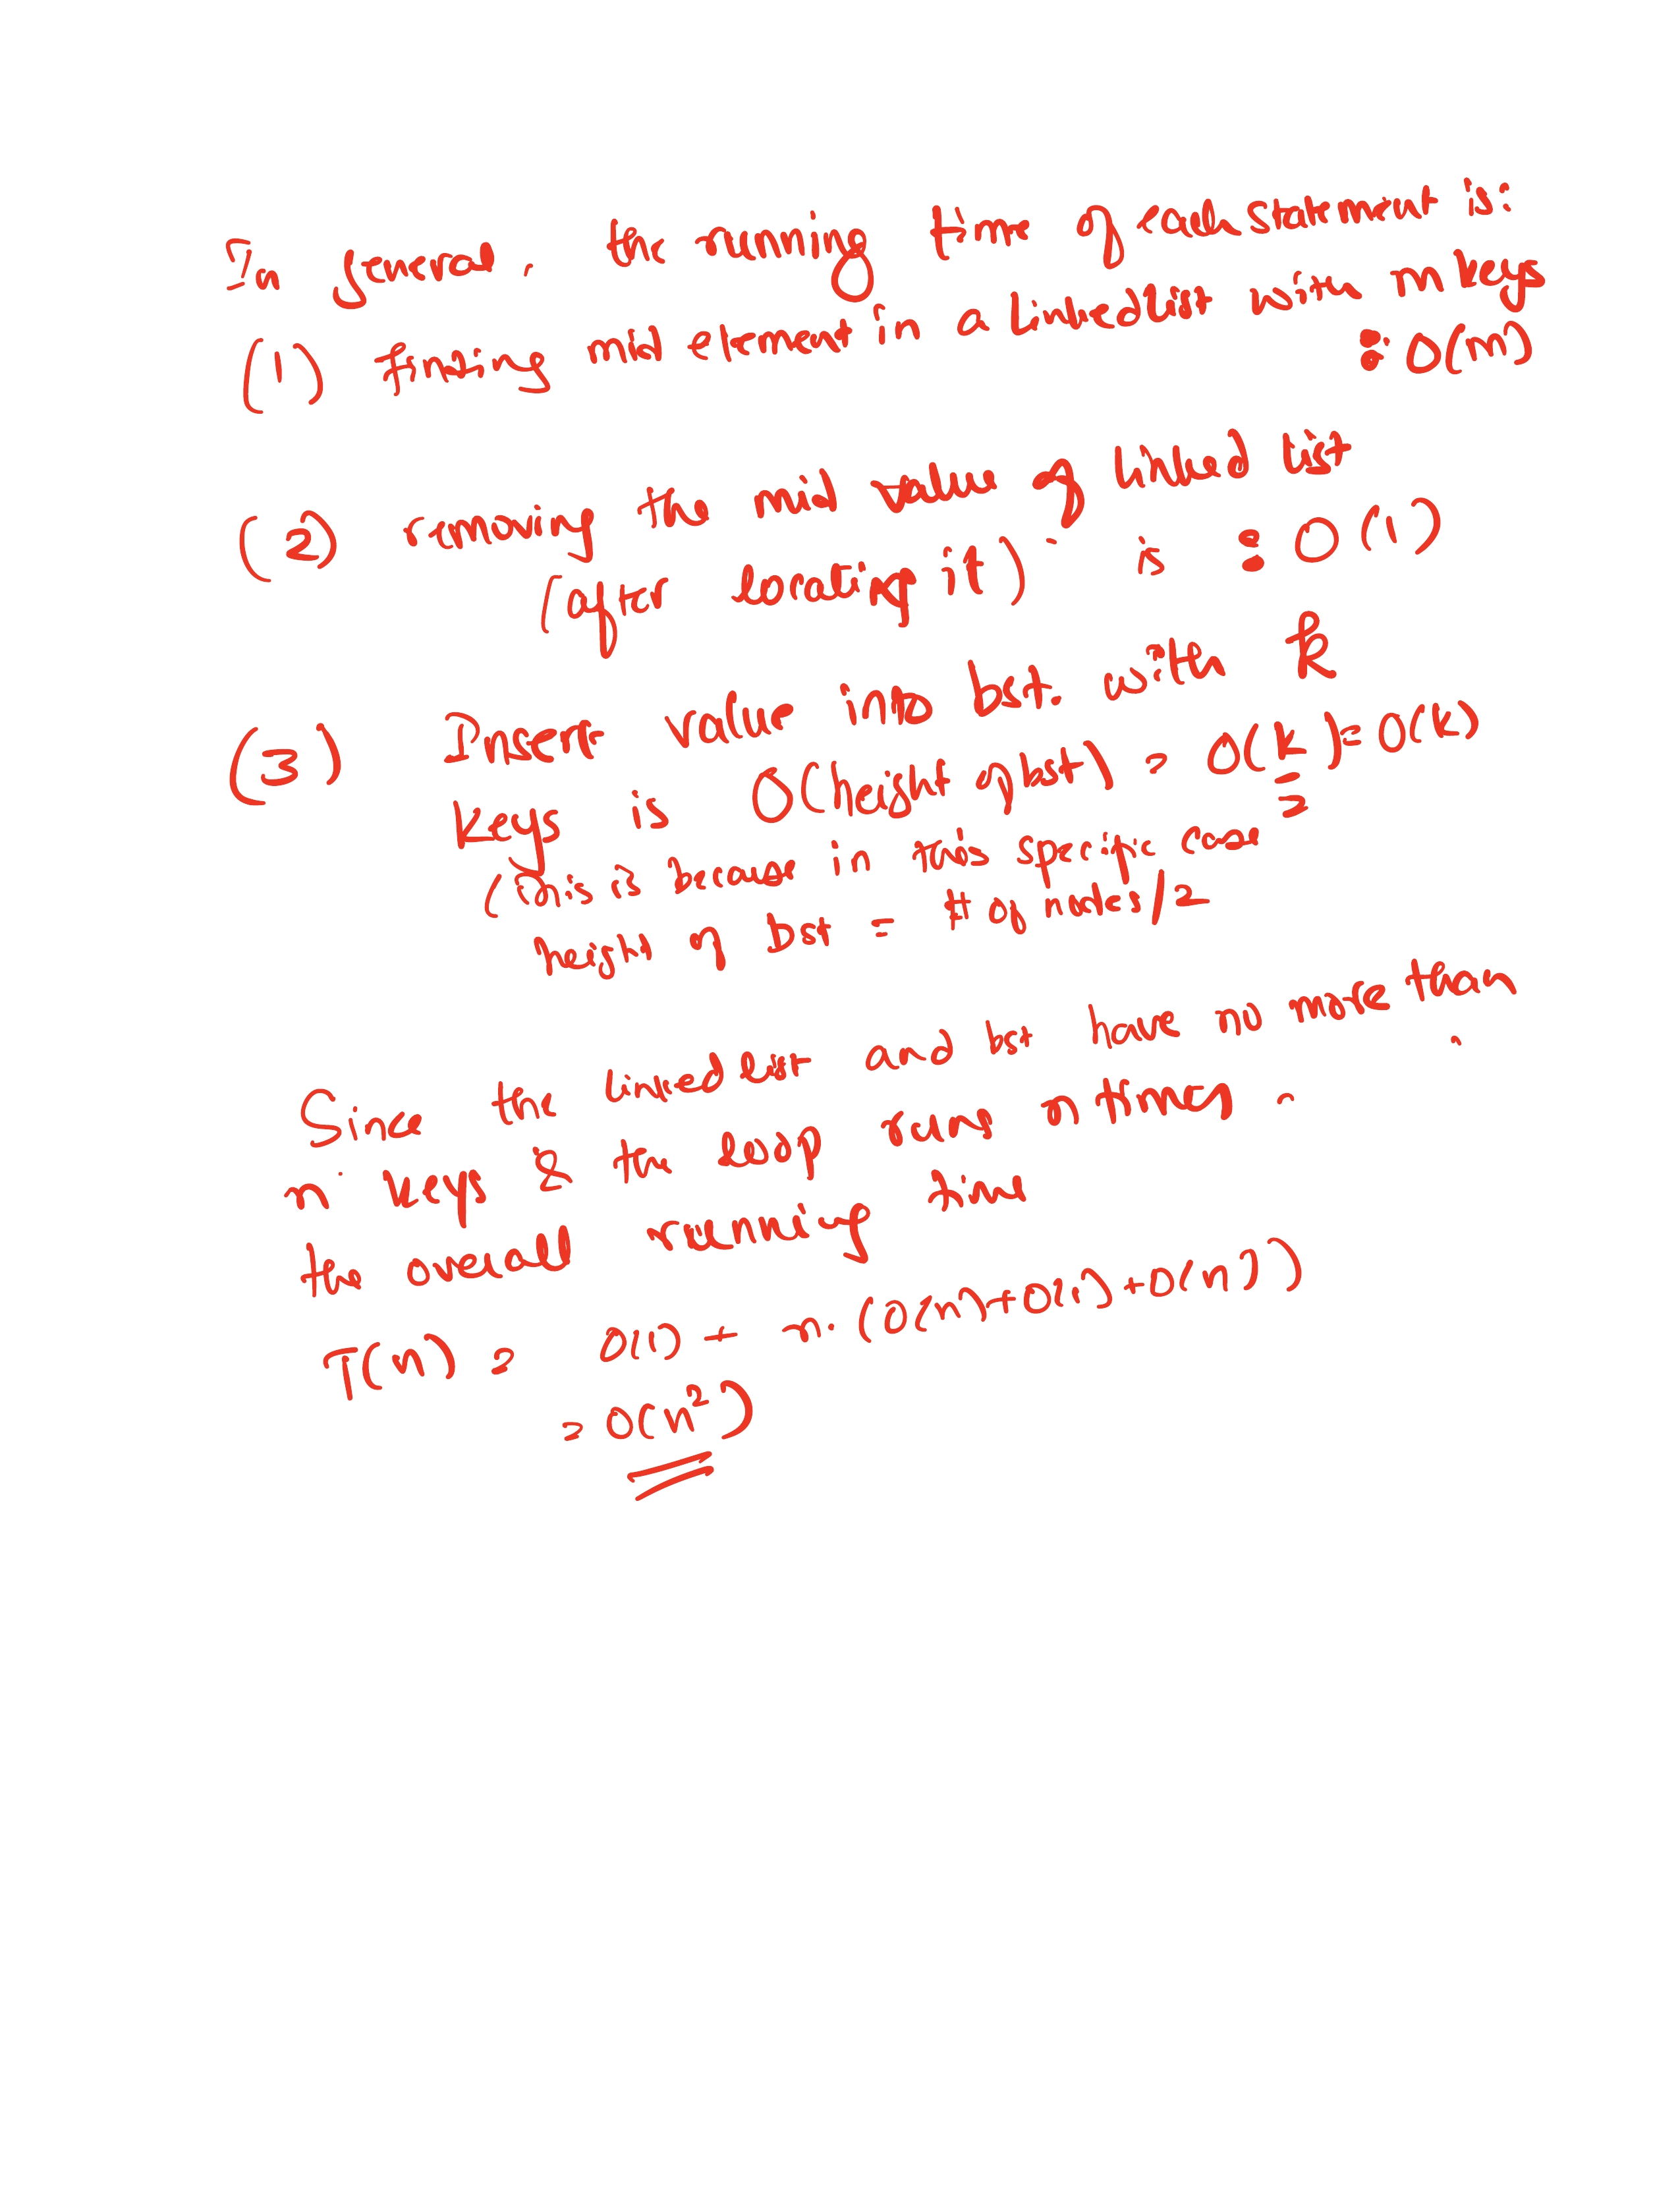 In general, the running time of each statement is:
(1) finding mid element in a linked list with m keys
: O(m)
(2) removing the mid value of linked list
(after locating it) is : O(1)
(3) Insert value into bst. with k
keys is O(height of bst) = O(k/2) = O(k)
(This is because in this specific case
height of bst = # of nodes/2
Since the linked list and bst have no more than
n keys & the loop runs n times,
the overall running time
T(n) = O(1) + n.(O(n)+O(1)+O(n))
= O(n²)